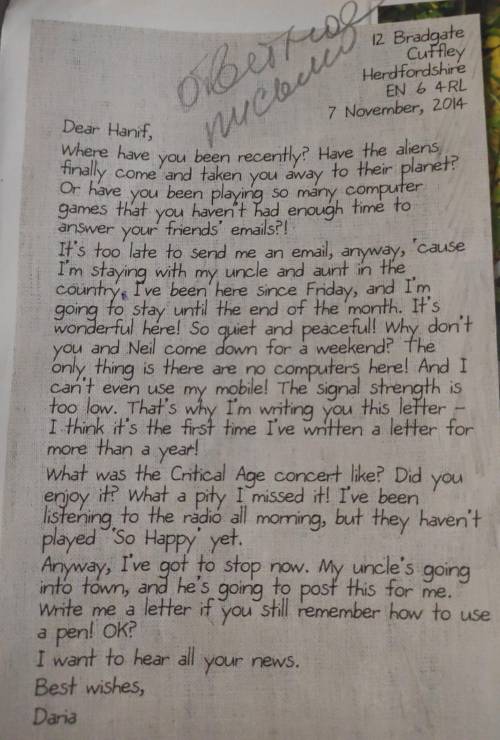 ответное
письмо
12 Bradgate
Cuffley
Herdfordshire
EN 6 4RL
7 November, 2014
Dear Hanif,
Where have you been recently? Have the aliens
finally come and taken you away to their planet?
Or have you been playing so many computer
games that you haven't had enough time to
answer your friends' emails?!
It's too late to send me an email, anyway, 'cause
I'm staying with my uncle and aunt in the
country. I've been here since Friday, and I'm
going to stay until the end of the month. It's
wonderful here! So quiet and peaceful! Why don't
you and Neil come down for a weekend? The
only thing is there are no computers here! And I
can't even use my mobile! The signal strength is
too low. That's why I'm writing you this letter –
I think it's the first time I've written a letter for
more than a year!
What was the Critical Age concert like? Did you
enjoy it? What a pity I missed it! I've been
listening to the radio all morning, but they haven't
played 'So Happy' yet.
Anyway, I've got to stop now. My uncle's going
into town, and he's going to post this for me.
Write me a letter if you still remember how to use
a pen! OK?
I want to hear all your news.
Best wishes,
Daria